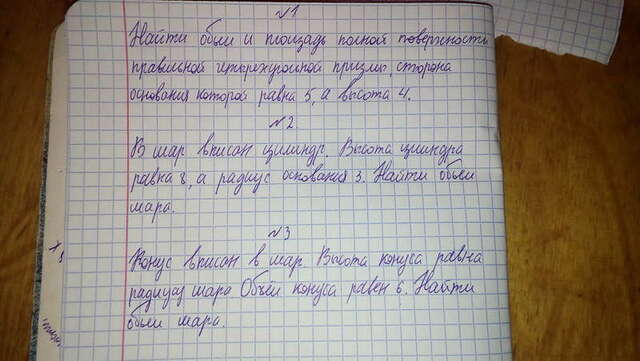 №1
Найти объём и площадь полной поверхности
правильной четырёхугольной призмы сторона
основания которой равна 5, а высота 4.
№2
В шар вписан цилиндр. Высота цилиндра
равна 8, а радиус основания 3. Найти объём
шара.
№3
Конус вписан в шар. Высота конуса равна
радиусу шара Объём конуса равен 6. Найти
объём шара.